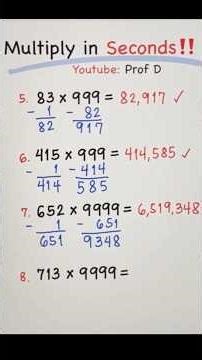 Multiply in Seconds!!
Youtube: Prof D
5. 83 x 999 = 82,917 ✓
- 1 - 82
82 917
6. 415 x 999 = 414,585 ✓
- 1 - 414
414 585
7. 652 x 9999 = 6,519,348
- 1 - 651
651 9348
8. 713 x 9999 =